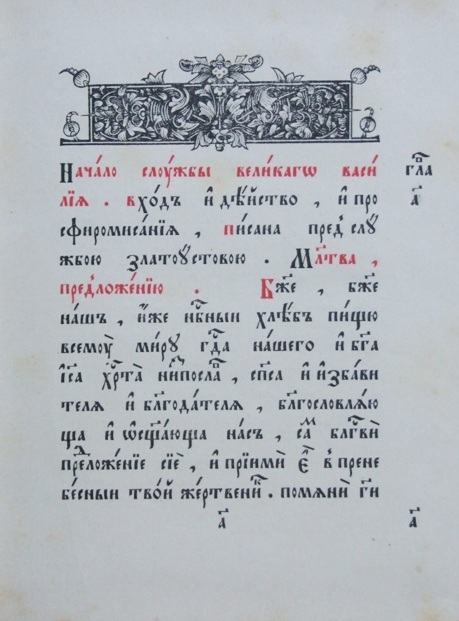 Нача́ло слꙋ́жбы вели́кагѡ васи́ гл҃а
лїѧ . вхо́дъ и҆ дѣ́йство , и҆ про а҃
сфиромиса́нїѧ , писана пред̾ слꙋ́
жбою златоꙋ́стовою . Мл҃тва ,
пред̾ложе́нїю . Бж҃е , бж҃е
на́шъ , и҆́же нб҃ныи хлѣ́бъ пи́щꙋ
всемꙋ̀ ми́рꙋ гд҇а на́шего и҆ бг҃а
і҆с҃а хр҇та̀ ни́посла̀ , сп҃са и҆ и҆зба́ви
телѧ и҆ бл҃года́телѧ , бл҃гословлѧ́ю
ща и҆ ѡ҆сщ҃а́юща на́съ , са́м бл҃гвѝ
предложе́нїе сїѐ , и҆ прїимѝ є҆̀ в прене
бе́сныи тво́й же́ртвени҇к . помѧнѝ гд҇и
а҃ а҃